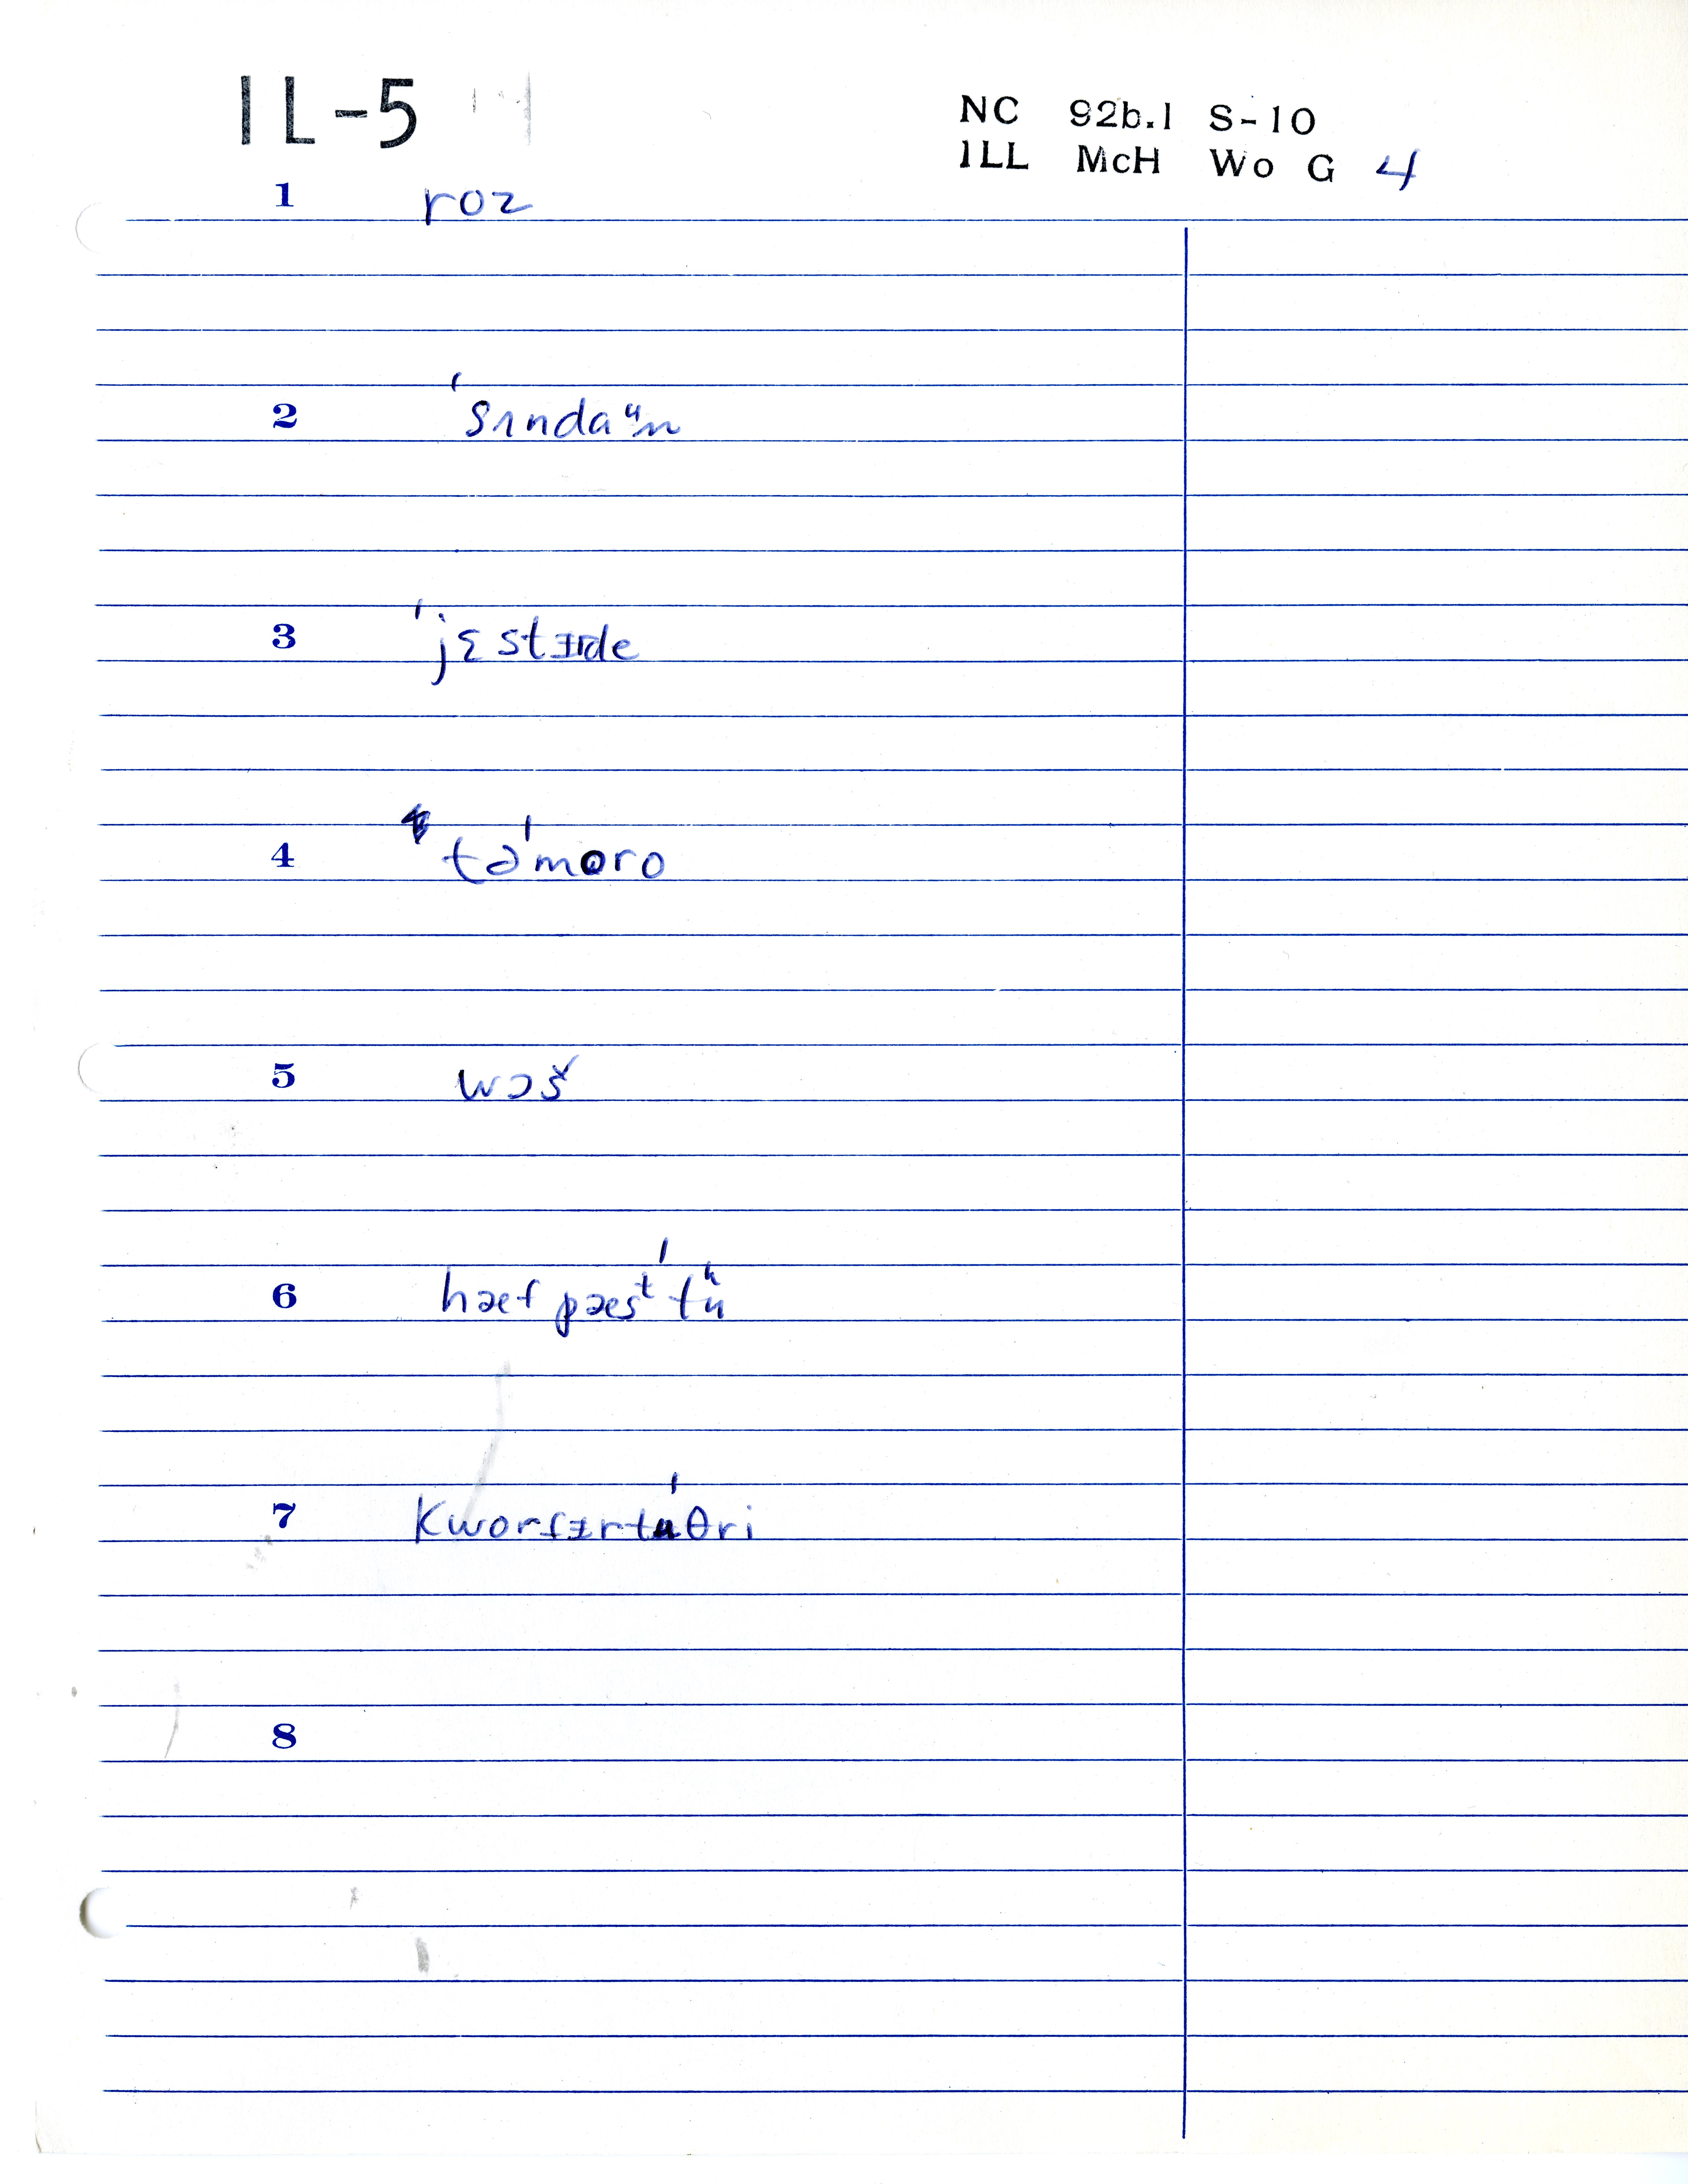 IL-5
NC 92b.1 S-10
ILL McH Wo G 4
1 roz
2 ˈsɪndaᶸn
3 ˈjɛstᵻrde
4 təˈmɑro
5 wɔš
6 hæf pæsᵗ ˈtᵘu
7 kwortᵻrtˈuθri
8